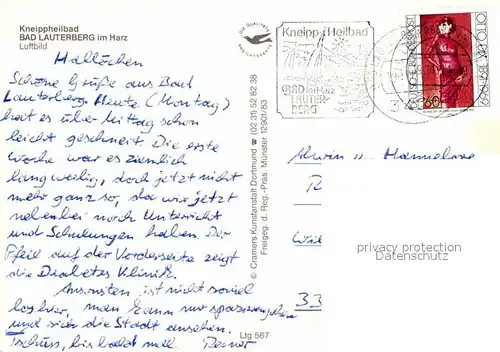 Kneippheilbad
BAD LAUTERBERG im Harz
Luftbild
Hallöchen
Schöne Grüße aus Bad
Lauterberg. Heute (Montag)
hat es über Mittag schon
leicht geschneit. Die erste
Woche war es ziemlich
langweilig, doch jetzt nicht
mehr ganz so, da wir jetzt
nebenbei noch Unterricht
und Schulungen haben. Der
Pfeil auf der Vorderseite zeigt
die Diabetes Klinik.
Ansonsten ist nicht soviel
los hier, man kann nur spazierengehen
und sich die Stadt ansehen.
Tschüss, bis bald mal
Ltg 567
© Cramers Kunstanstalt Dortmund ☎ (02 31) 52 82 38
Freigeg. d. Reg.-Präs. Münster 12901/83
Kneipp-Heilbad
BAD im Harz
LAUTER-
BERG
DEUTSCHE BUNDESPOST
60
OTTO DIX 1891-1969
Hannelore
33
privacy protection
Datenschutz